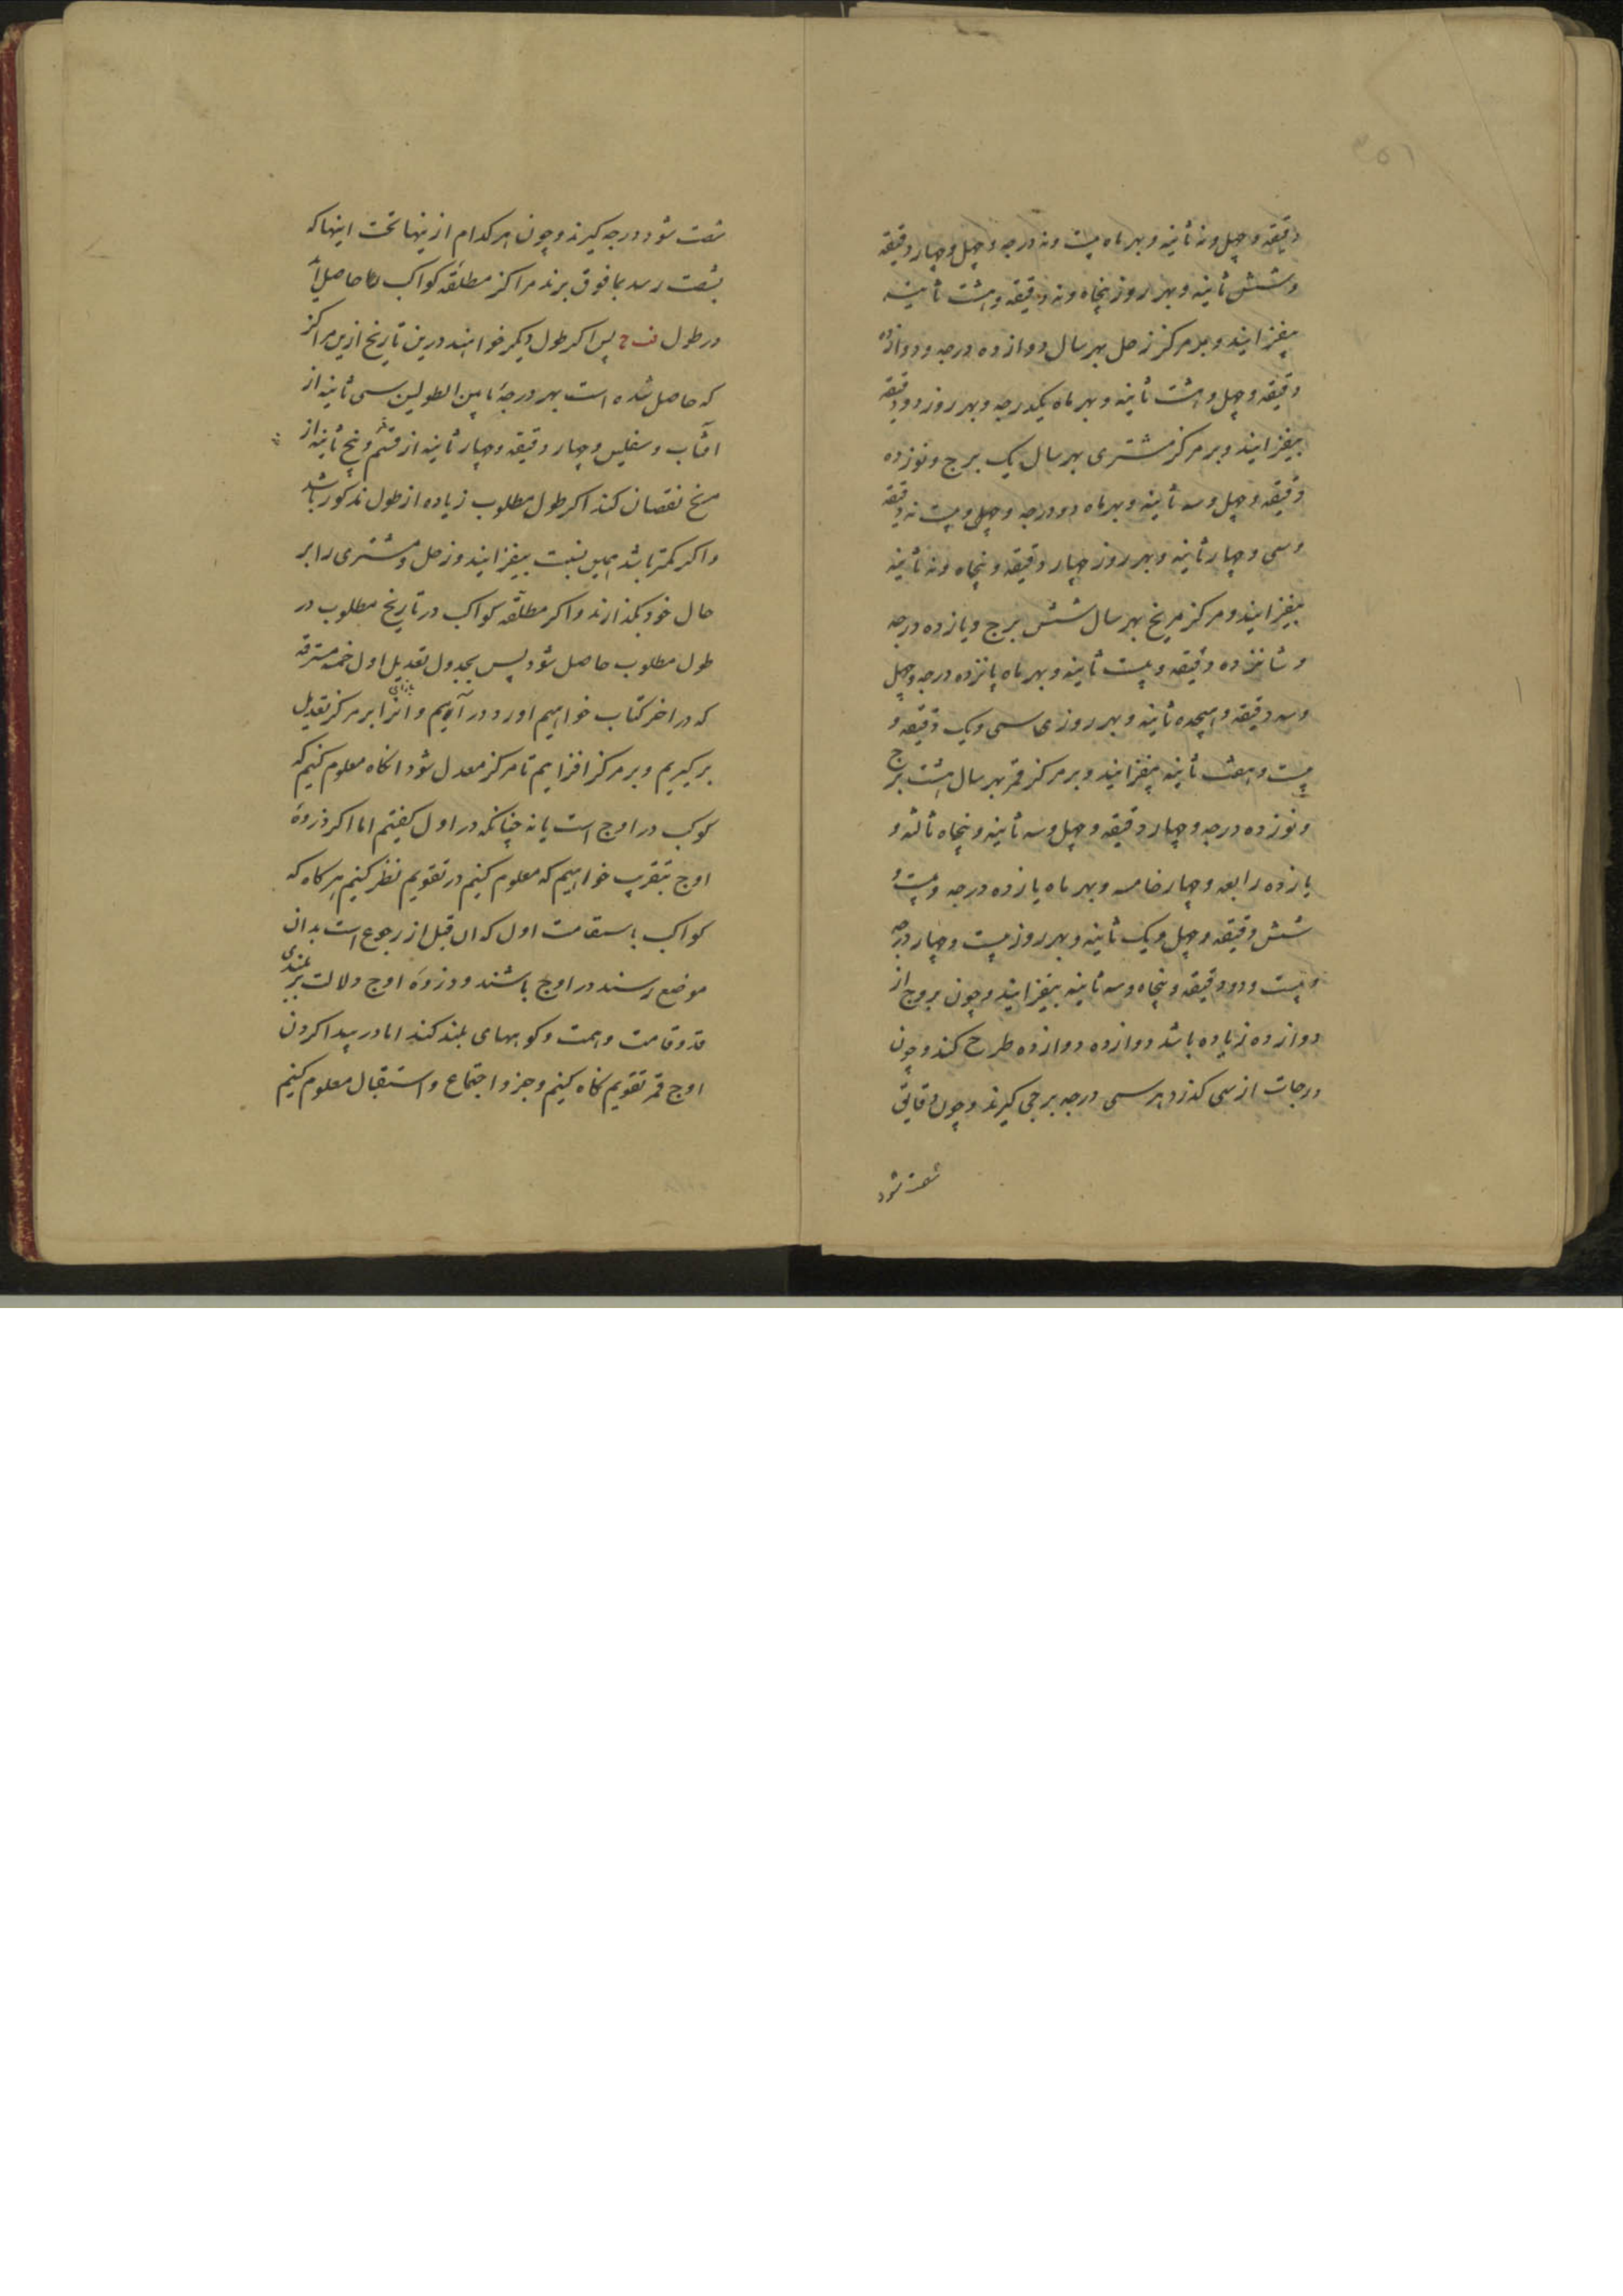 دقیقه و چهل و نه ثانیه و بهر ماه بیست و نه درجه و چهل و چهار دقیقه
و شش ثانیه و بهر روز پنجاه و نه دقیقه و هشت ثانیه
بیفزایند و بر مرکز زحل بهر سال دوازده درجه و دوازده
دقیقه و چهل و هشت ثانیه و بهر ماه یکدرجه و بهر روز دو دقیقه
بیفزایند و بر مرکز مشتری بهر سال یک برج و نوزده
دقیقه و چهل و سه ثانیه و بهر ماه دو درجه و بیست نه دقیقه
و سی و چهار ثانیه و بهر روز چهار دقیقه و پنجاه و نه ثانیه
بیفزایند و مرکز مریخ بهر سال شش برج و یازده درجه
و شانزده دقیقه و بیست ثانیه و بهر ماه پانزده درجه و چهل
و سه دقیقه و هیجده ثانیه و بهر روزی سی و یک دقیقه و
بیست و هفت ثانیه بیفزایند و بر مرکز قمر بهر سال هشت برج
و نوزده درجه و چهار دقیقه و چهل و سه ثانیه و پنجاه ثالثه و
یازده رابعه و چهار خامسه و بهر ماه یازده درجه و بیست و
شش دقیقه و چهل و یک ثانیه و بهر روز بیست و چهار درجه
و بیست و دو دقیقه و پنجاه و سه ثانیه بیفزایند و چون بروج از
دوازده زیاده باشد دوازده دوازده طرح کنند و چون
درجات از سی گذرد هر سی درجه برجی گیرند و چون دقایق
شصت شود
شصت شود درجه گیرند و چون هر کدام ازینها تحت اینها که
بشصت رسد بمافوق برند مراکز مطلقه کواکب حاصل آید
در طول ف ح پس اگر طول دیگر خواهند درین تاریخ ازین مراکز
که حاصل شده است بهر درجهٔ مابین الطولین سی ثانیه از
آفتاب و سفلیین و چهار دقیقه و چهار ثانیه از قمر و پنج ثانیه از
مریخ نقصان کنند اگر طول مطلوب زیاده از طول مذکور باشد
و اگر کمتر باشد همین نسبت بیفزایند و زحل و مشتری را بر
حال خود بگذارند و اگر مطلقه کواکب در تاریخ مطلوب در
طول مطلوب حاصل شود پس بجدول تعدیل اول خمسه مسترقه
که در آخر کتاب خواهیم آورد در آئیم و بازای آنرا بر مرکز تعدیل
برگیریم و بر مرکز افزایم تا مرکز معدل شود انگاه معلوم کنیم که
کوکب در اوج است یا نه چنانکه در اول گفتیم اما اگر ذروهٔ
اوج بتقریب خواهیم که معلوم کنیم در تقویم نظر کنیم هرگاه که
کواکب باستقامت اول که آن قبل از رجوع است بدان
موضع رسند در اوج باشند و ذروهٔ اوج دلالت بر بلندی
قد و قامت و همت و کوههای بلند کند اما در پیدا کردن
اوج قمر تقویم نگاه کنیم و جزو اجتماع و استقبال معلوم کنیم